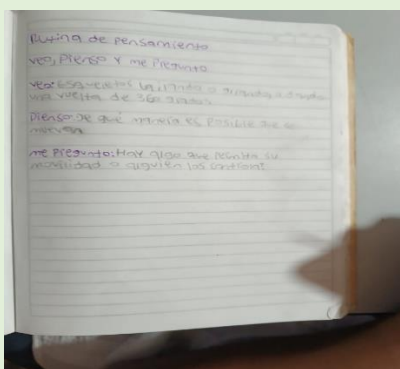 Rutina de pensamiento
veo, Pienso Y me Pregunto
veo: esqueletos bailando o
una vuelta de 360 grados.
Pienso: De qué manera es posible que se
muevan
me Pregunto: Hay algo que permita su
movilidad o alguien los controla?